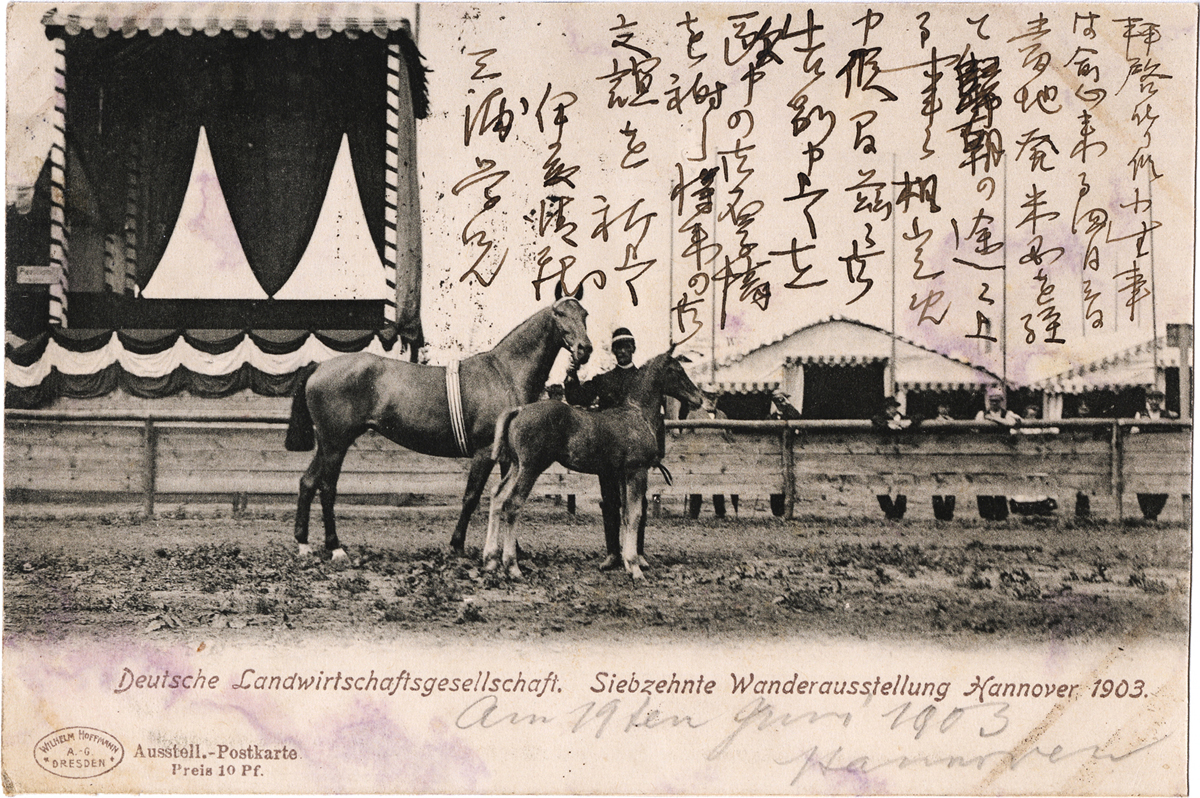 拝啓 小生事
は愈来る四日を
当地発米国を経
て帰朝の途に上
る事に相定
申候間茲に御
告別申上在
欧中の御厚情
を謝し将来の御
交誼を祈上
伊藤清蔵
三浦学兄
Deutsche Landwirtschaftsgesellschaft. Siebzehnte Wanderausstellung Hannover 1903.
Am 19ten Juni 1903
Hannover
WILHELM HOFFMANN
A.-G.
DRESDEN
Ausstell.-Postkarte
Preis 10 Pf.